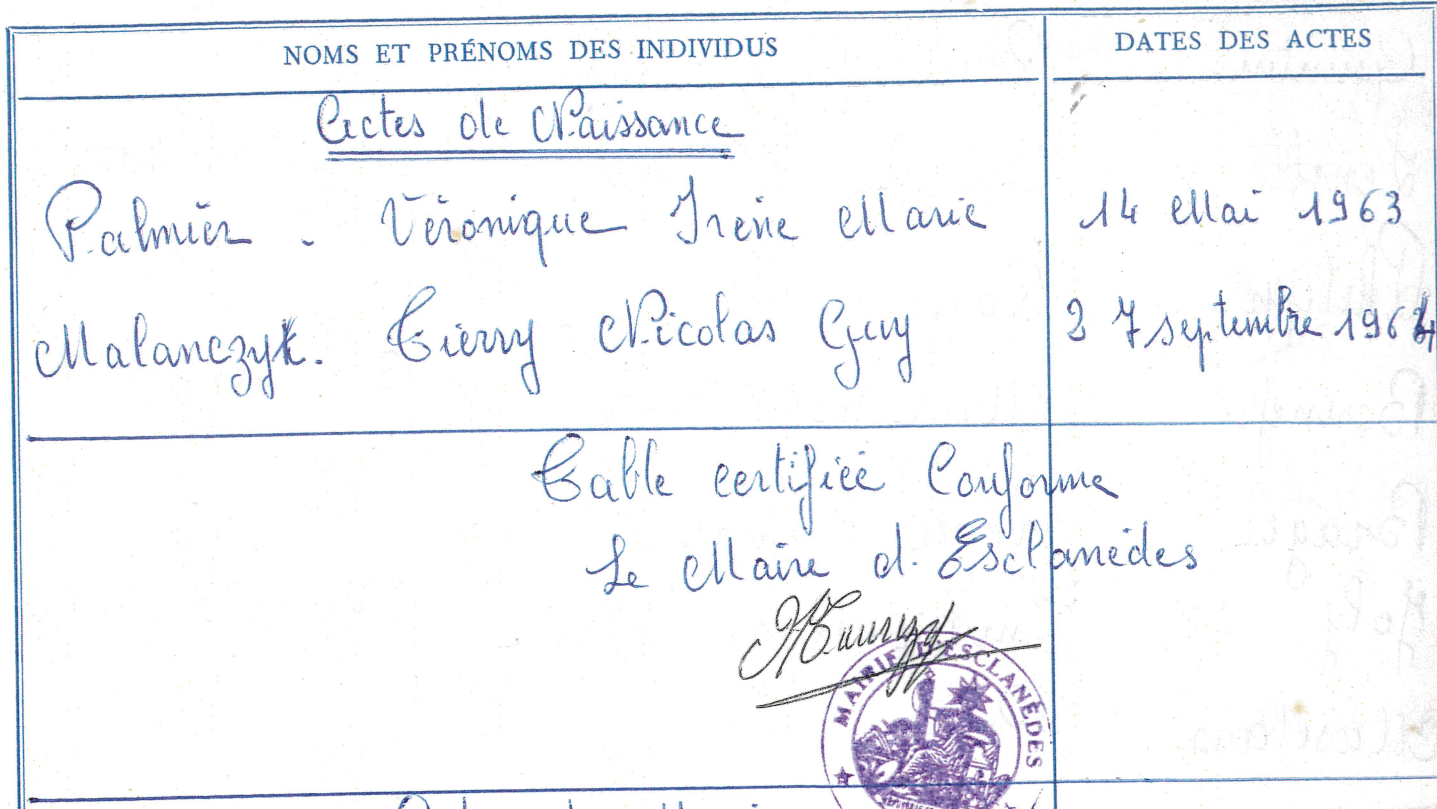 NOMS ET PRÉNOMS DES INDIVIDUS DATES DES ACTES
Actes de Naissance
Palmier - Véronique Irène Marie 14 Mai 1963
Malanczyk. Tierry Nicolas Guy 27 septembre 1964
Table certifiée Conforme
Le Maire d. Esclanèdes
MAIRIE D'ESCLANÈDES